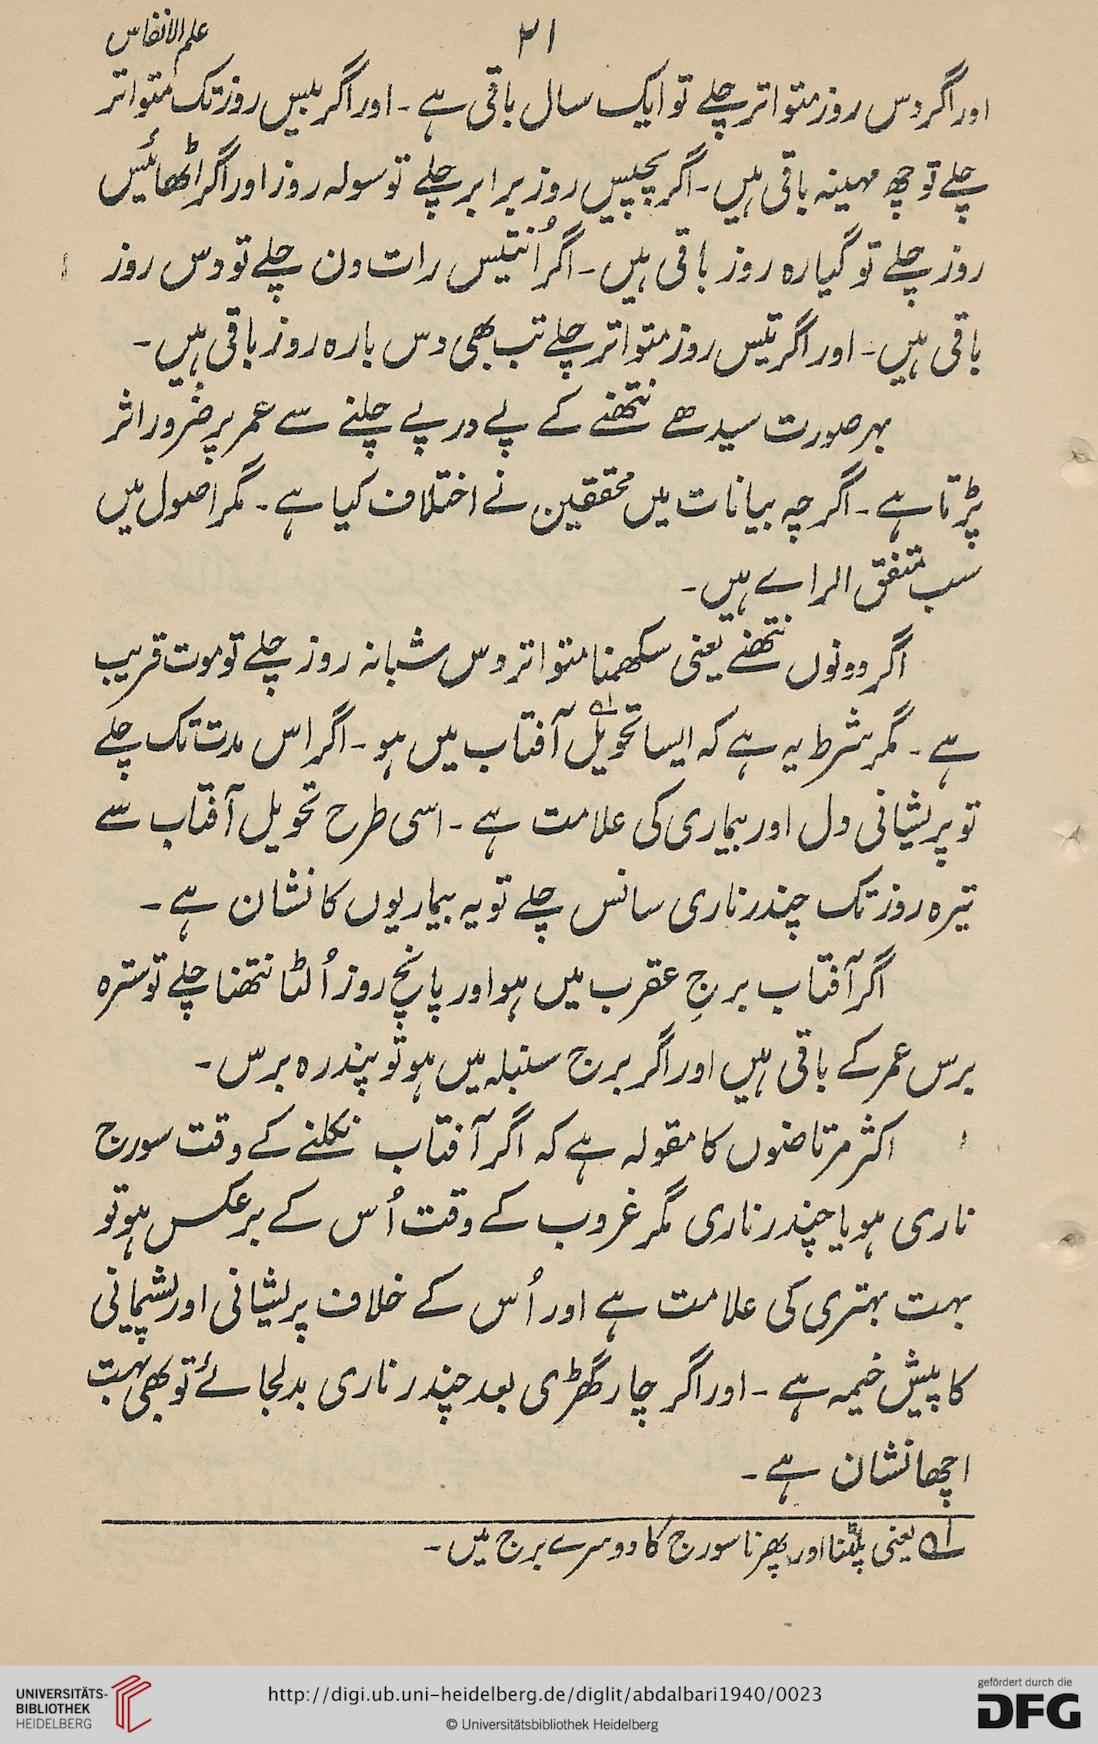 ۲۱
علم الانفاس
اور اگر دس روز متواتر چلے تو ایک سال باقی ہے۔ اور اگر بیس روز تک متواتر
چلے تو چھ مہینہ باقی ہیں۔ اگر پچیس روز برابر چلے تو سولہ روز اور اگر اٹھائیس
روز چلے تو گیارہ روز باقی ہیں۔ اگر اُنتیس رات دن چلے تو دس روز
باقی ہیں۔ اور اگر تیس روز متواتر چلے تب بھی دس بارہ روز باقی ہیں۔
بہر صورت سیدھے نتھنے کے پے در پے چلنے سے عمر پر ضرور اثر
پڑتا ہے۔ اگر چہ بیانات میں محققین نے اختلاف کیا ہے۔ مگر اصول میں
سب متفق الراے ہیں۔
اگر دونوں نتھنے یعنی سکھمنا متواتر دس شبانہ روز چلے تو موت قریب
ہے۔ مگر شرط یہ ہے کہ ایسا تحویل؂۱ آفتاب میں ہو۔ اگر اس مدت تک چلے
تو پریشانی دل اور بیماری کی علامت ہے۔ اسی طرح تحویل آفتاب سے
تیرہ روز تک چندر ناری سانس چلے تو یہ بیماریوں کا نشان ہے۔
اگر آفتاب برجِ عقرب میں ہو اور پانچ روز اُلٹا نتھنا چلے تو سترہ
برس عمر کے باقی ہیں اور اگر برج سنبلہ میں ہو تو پندرہ برس۔
اکثر مرتاضوں کا مقولہ ہے کہ اگر آفتاب نکلنے کے وقت سورج
ناری ہو یا چندر ناری مگر غروب کے وقت اُس کے برعکس ہو تو
بہت بہتری کی علامت ہے اور اُس کے خلاف پریشانی اور پشیمانی
کا پیش خیمہ ہے۔ اور اگر چار گھڑی بعد چندر ناری بدلجائے تو بھی بہت
اچھا نشان ہے۔
؂۱ یعنی پلٹنا اور پھرنا سورج کا دوسرے برج میں۔
UNIVERSITÄTS-
BIBLIOTHEK
HEIDELBERG
http://digi.ub.uni-heidelberg.de/diglit/abdalbari1940/0023
© Universitätsbibliothek Heidelberg
gefördert durch die
DFG